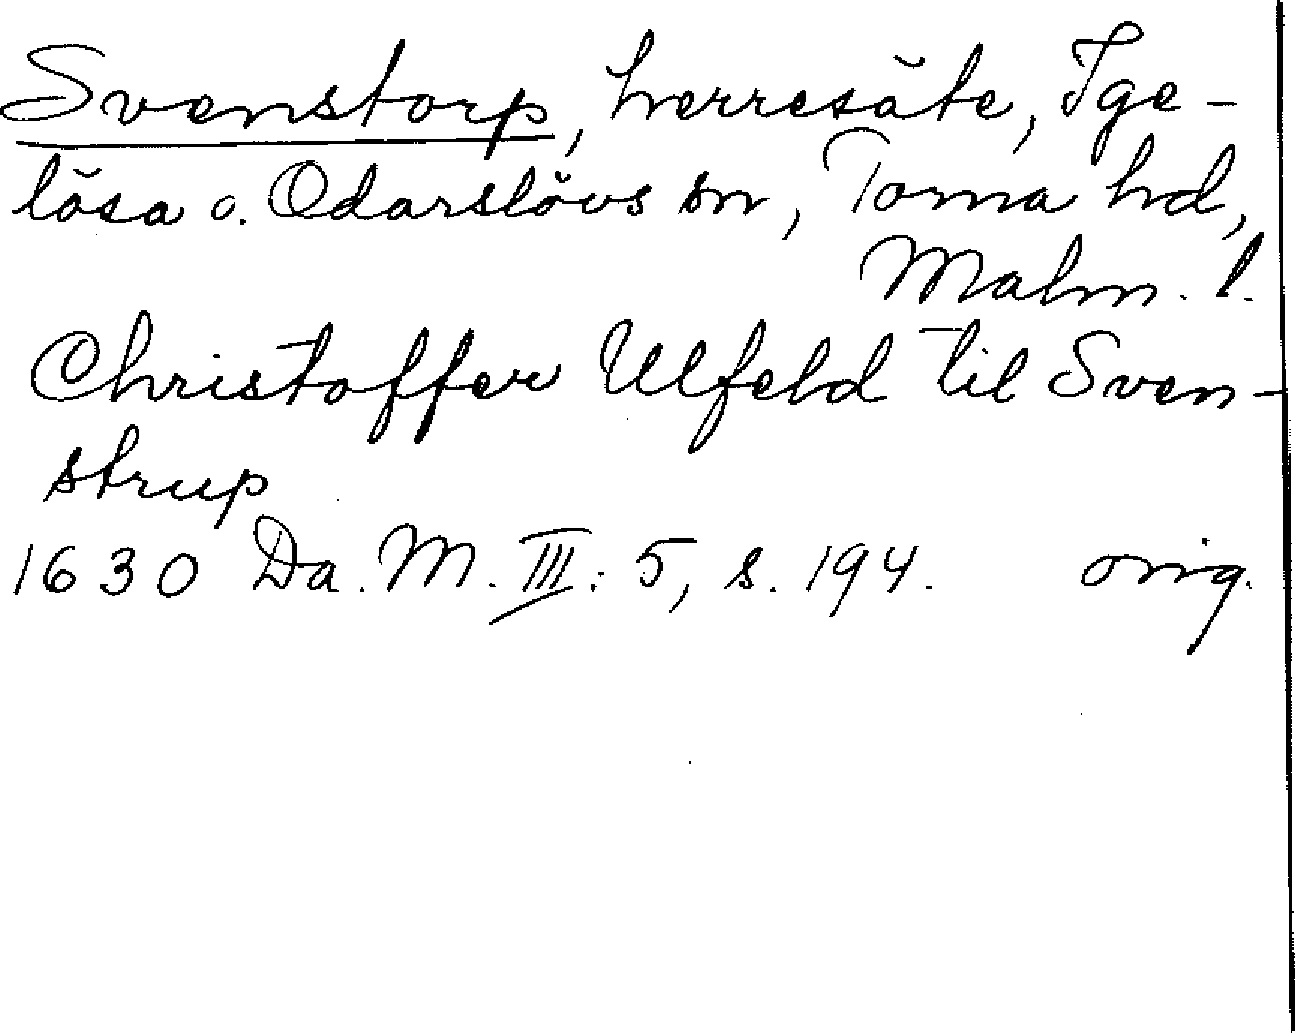 Svenstorp, herresäte, Ige-
lösa o. Odarslövs sn, Torna hd,
Malm. l.
Christoffer Ulfeld til Sven-
strup
1630 Da. M. III: 5, s. 194. orig.